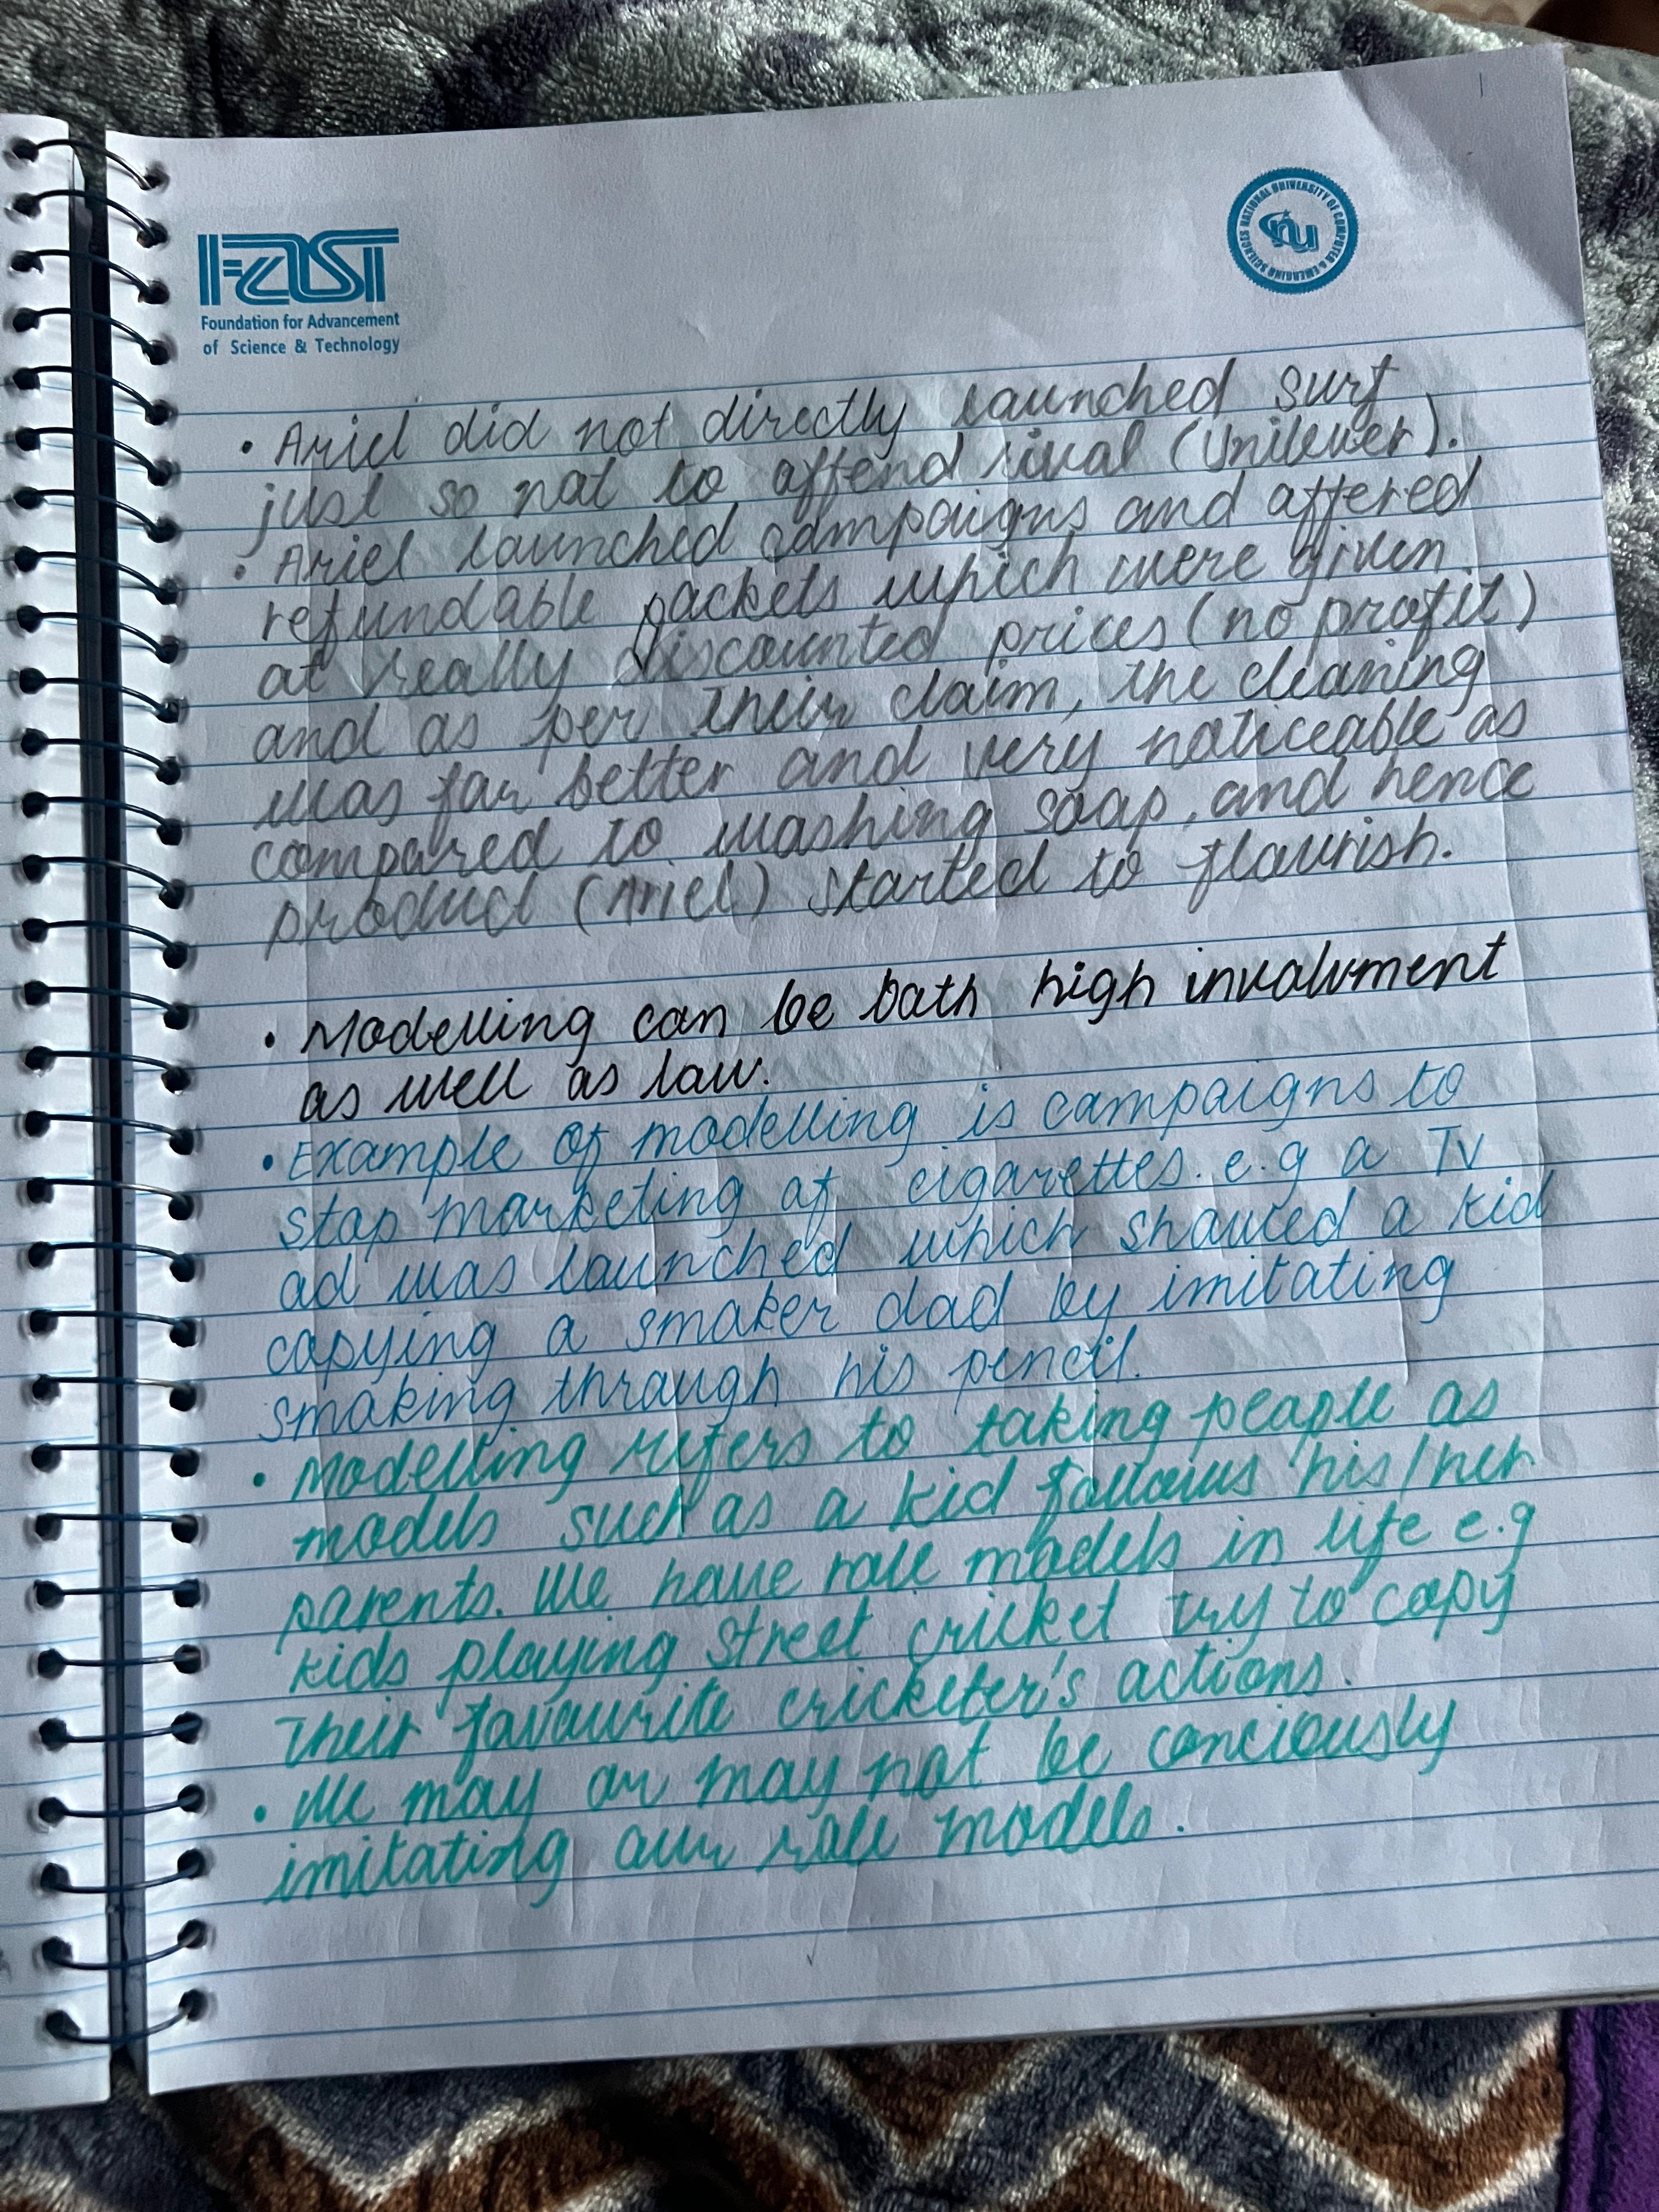 FAST
Foundation for Advancement
of Science & Technology
NATIONAL UNIVERSITY OF COMPUTER & EMERGING SCIENCES
nu
• Ariel did not directly launched surf
just so not to offend rival (Unilever).
• Ariel launched campaigns and offered
refundable packets which were given
at really discounted prices (no profit)
and as per their claim, the cleaning
was far better and very noticeable as
compared to washing soap, and hence
product (Ariel) started to flourish.
• Modelling can be both high involvment
as well as low.
• Example of modelling is campaigns to
stop marketing of cigarettes. e.g a TV
ad was launched which showed a kid
copying a smoker dad by imitating
smoking through his pencil.
• Modelling refers to taking people as
models such as a kid follows his/her
parents. We have role models in life e.g
kids playing street cricket try to copy
their favourite cricketer's actions.
• We may or may not be conciously
imitating our role models.